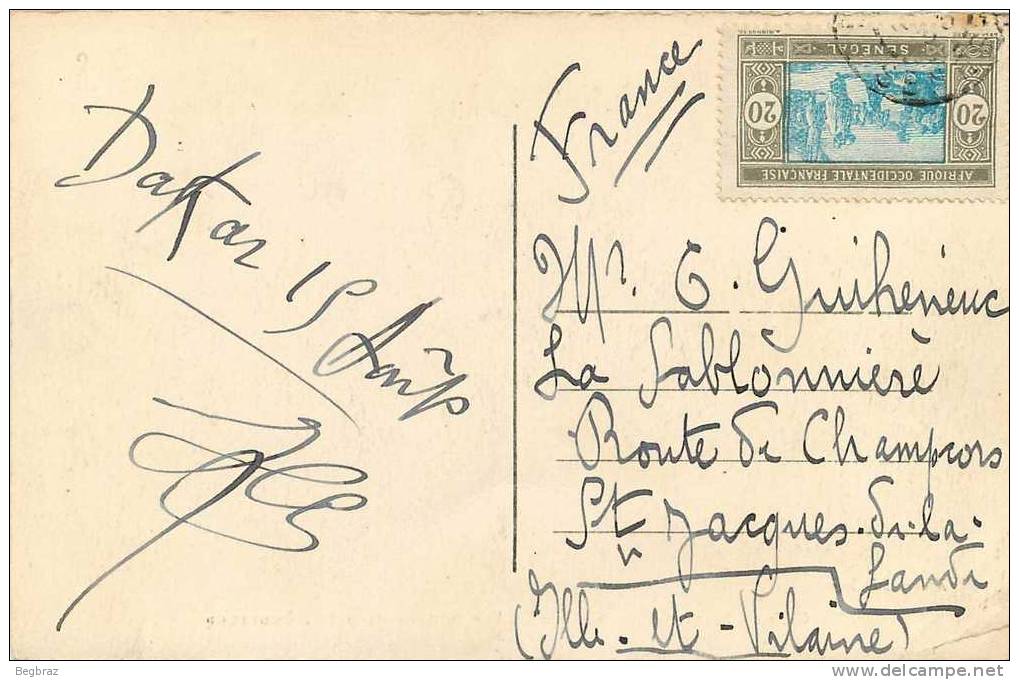 Dakar 15
France
SENEGAL
20 20
AFRIQUE OCCIDENTALE FRANÇAISE
Mr. E. Guiheneuc
La Sablonnière
Route de Champcors
St Jacques-de-la-
Lande
(Ille-et-Vilaine)
Begbraz
delcampe.net